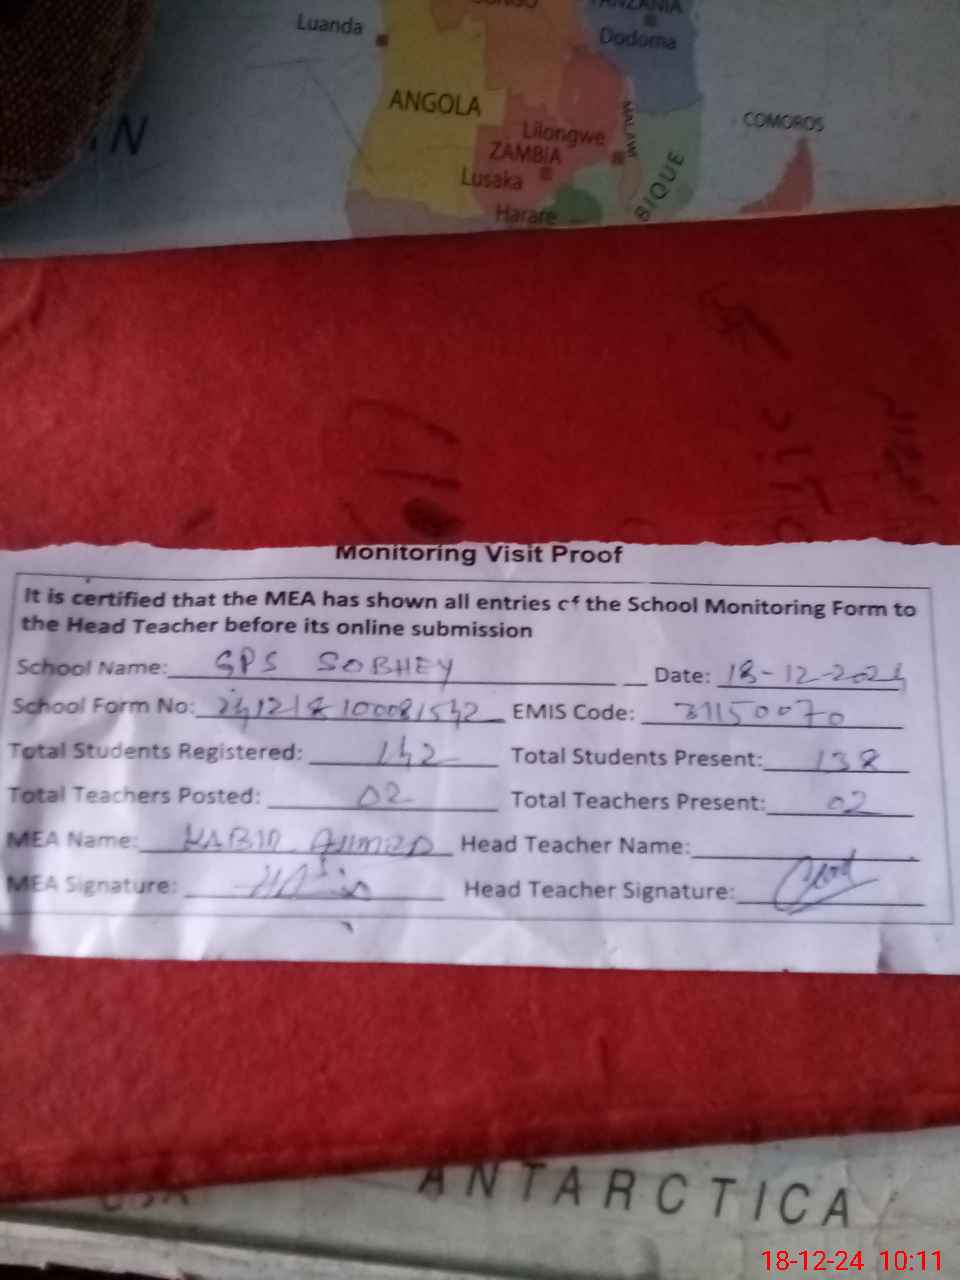 TANZANIA
Luanda
Dodoma
ANGOLA
MALAWI
COMOROS
Lilongwe
ZAMBIA
Lusaka
BIQUE
Harare
Monitoring Visit Proof
It is certified that the MEA has shown all entries of the School Monitoring Form to
the Head Teacher before its online submission
School Name: GPS SOBHEY Date: 18-12-2024
School Form No: EMIS Code: 31150070
Total Students Registered: 142 Total Students Present: 138
Total Teachers Posted: 02 Total Teachers Present: 02
MEA Name: KABIR AHMED Head Teacher Name:
MEA Signature: Head Teacher Signature:
ANTARCTICA
18-12-24 10:11